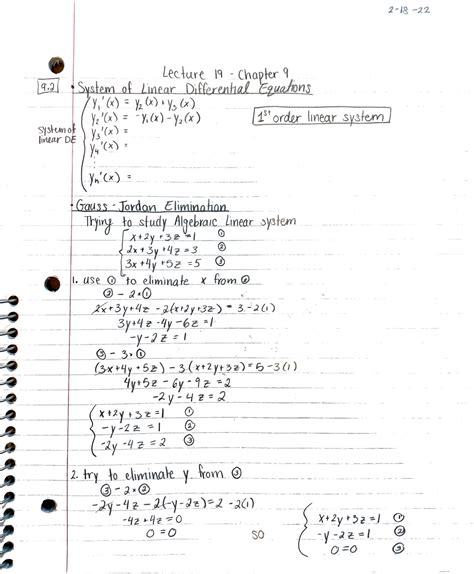 2-18-22
Lecture 19 - Chapter 9
9.2 • System of Linear Differential Equations
y₁'(x) = y₂(x) + y₃(x)
y₂'(x) = -y₁(x) - y₂(x)
1st order linear system
system of linear DE
y₃'(x) =
y₄'(x) =
⋮
yₙ'(x) =
• Gauss - Jordan Elimination
Trying to study Algebraic Linear system
x+2y+3z=1 ①
2x+3y+4z=3 ②
3x+4y+5z=5 ③
1. use ① to eliminate x from ②
② - 2·①
2x+3y+4z -2(x+2y+3z) = 3-2(1)
3y+4z-4y-6z=1
-y-2z=1
③ - 3·①
(3x+4y+5z) - 3(x+2y+3z) = 5-3(1)
4y+5z-6y-9z=2
-2y-4z=2
x+2y+3z=1 ①
-y-2z=1 ②
-2y-4z=2 ③
2. try to eliminate y from ③
③ - 2·②
-2y-4z-2(-y-2z)=2-2(1)
-4z+4z=0
0=0
so
x+2y+3z=1 ①
-y-2z=1 ②
0=0 ③